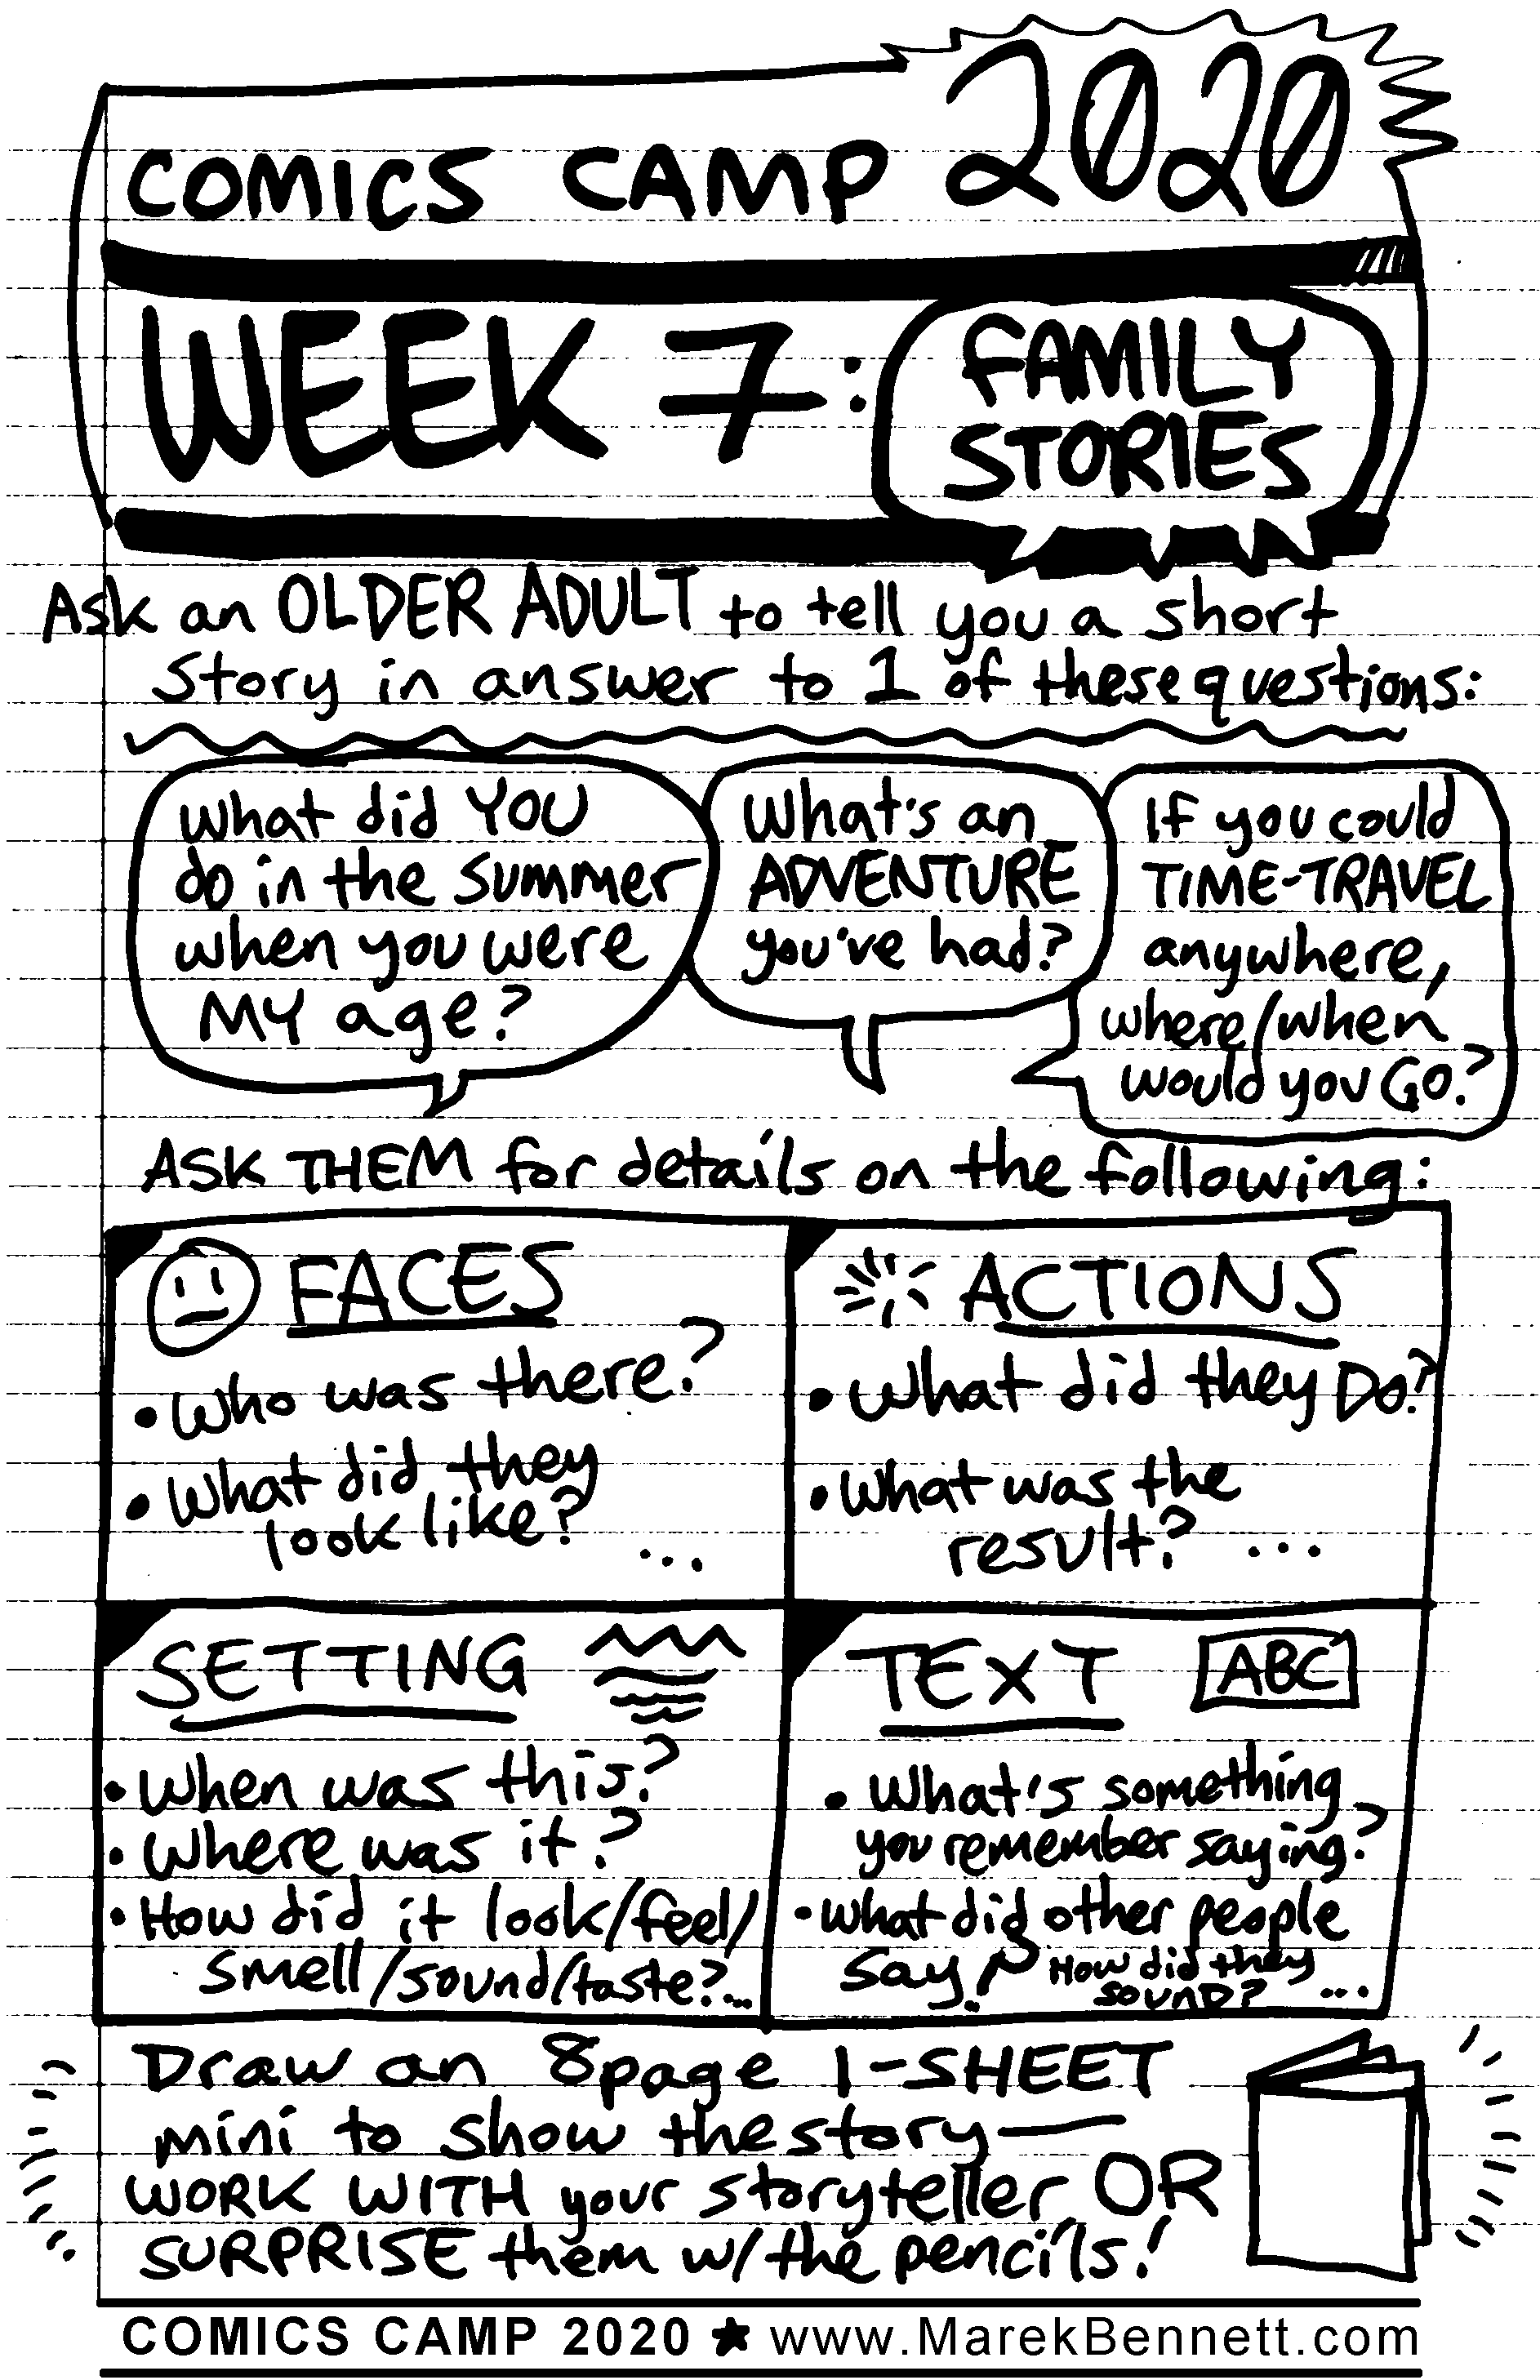 COMICS CAMP 2020
WEEK 7:
FAMILY
STORIES
Ask an OLDER ADULT to tell you a short
Story in answer to 1 of these questions:
What did YOU
do in the summer
when you were
MY age?
What's an
ADVENTURE
you've had?
If you could
TIME-TRAVEL
anywhere,
where/when
would you GO?
ASK THEM for details on the following:
FACES
• Who was there?
• What did they
look like? ...
ACTIONS
• What did they DO?
• What was the
result? ...
SETTING
• When was this?
• Where was it?
• How did it look/feel/
smell/sound/taste?...
TEXT ABC
• What's something
you remember saying?
• What did other people
say? How did they
SOUND? ...
Draw an 8page 1-SHEET
mini to show the story—
WORK WITH your storyteller OR
SURPRISE them w/ the pencils!
COMICS CAMP 2020 ★ www.MarekBennett.com